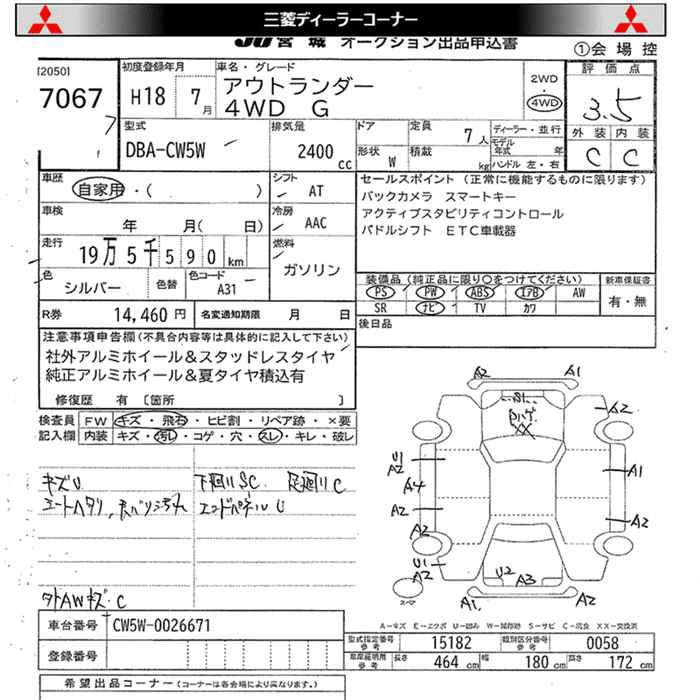 三菱ディーラーコーナー
JU宮城 オークション出品申込書
①会場控
[2050]
7067
初度登録年月
H18 7月
車名・グレード
アウトランダー
4WD G
2WD
・
4WD
評価点
3.5
外装 内装
C C
型式
DBA-CW5W
排気量
2400 cc
ドア
形状 W
定員 7人
積載 kg
ディーラー・並行
モデル年式 年
ハンドル 左・右
車歴
自家用・( )
シフト
AT
車検
年 月( 日)
冷房
AAC
走行
19万5千590km
燃料
ガソリン
色
シルバー
色替
色コード
A31
R券 14,460円
名変通知期限 月 日
セールスポイント (正常に機能するものに限ります)
バックカメラ スマートキー
アクティブスタビリティコントロール
パドルシフト ETC車載器
装備品 (純正品に限り○をつけてください)
PS PW ABS エアB AW
SR ナビ TV カワ
新車保証書
有・無
後日品
注意事項申告欄(不具合内容等は具体的に記入して下さい)
社外アルミホイール&スタッドレスタイヤ
純正アルミホイール&夏タイヤ積込有
修復歴 有 〔箇所 〕
検査員記入欄
FW キズ・飛石・ヒビ割・リペア跡・×要
内装 キズ・汚レ・コゲ・穴・スレ・キレ・破レ
キズU 下廻りSC 足廻りC
シートヘタリ, 天バリヨゴレ エンドパネルU
外AWキズ・C
A2 A1
S1
XX
A2
U1
A2
A1
A4
A2
A2
A2
U1
A2
U2
A3
A1
A2
スペア
A-キズ E-エクボ U-凹み W-補修跡 S-サビ C-腐食 XX-交換済
車台番号 CW5W-0026671
登録番号
型式指定番号 参考 15182
類別区分番号 参考 0058
車庫証明用 参考 長さ 464cm 幅 180cm 高さ 172cm
希望出品コーナー(コーナーは各会場により異なります。)